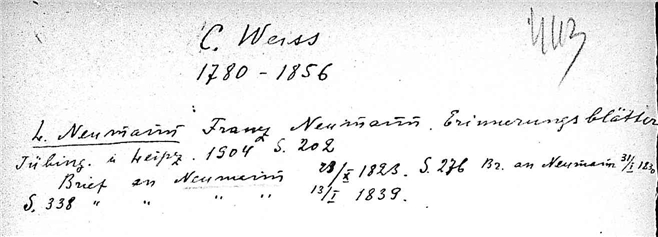 C. Weiss
1780 - 1856
L. Neumann Franz Neumann. Erinnerungsblätter
Tübing. u Leipz. 1904 S. 202
Brief an Neumann 28/X 1823. S. 276 Br. an Neumann 31/I 1830
S. 338 " " " " 13/I 1839.